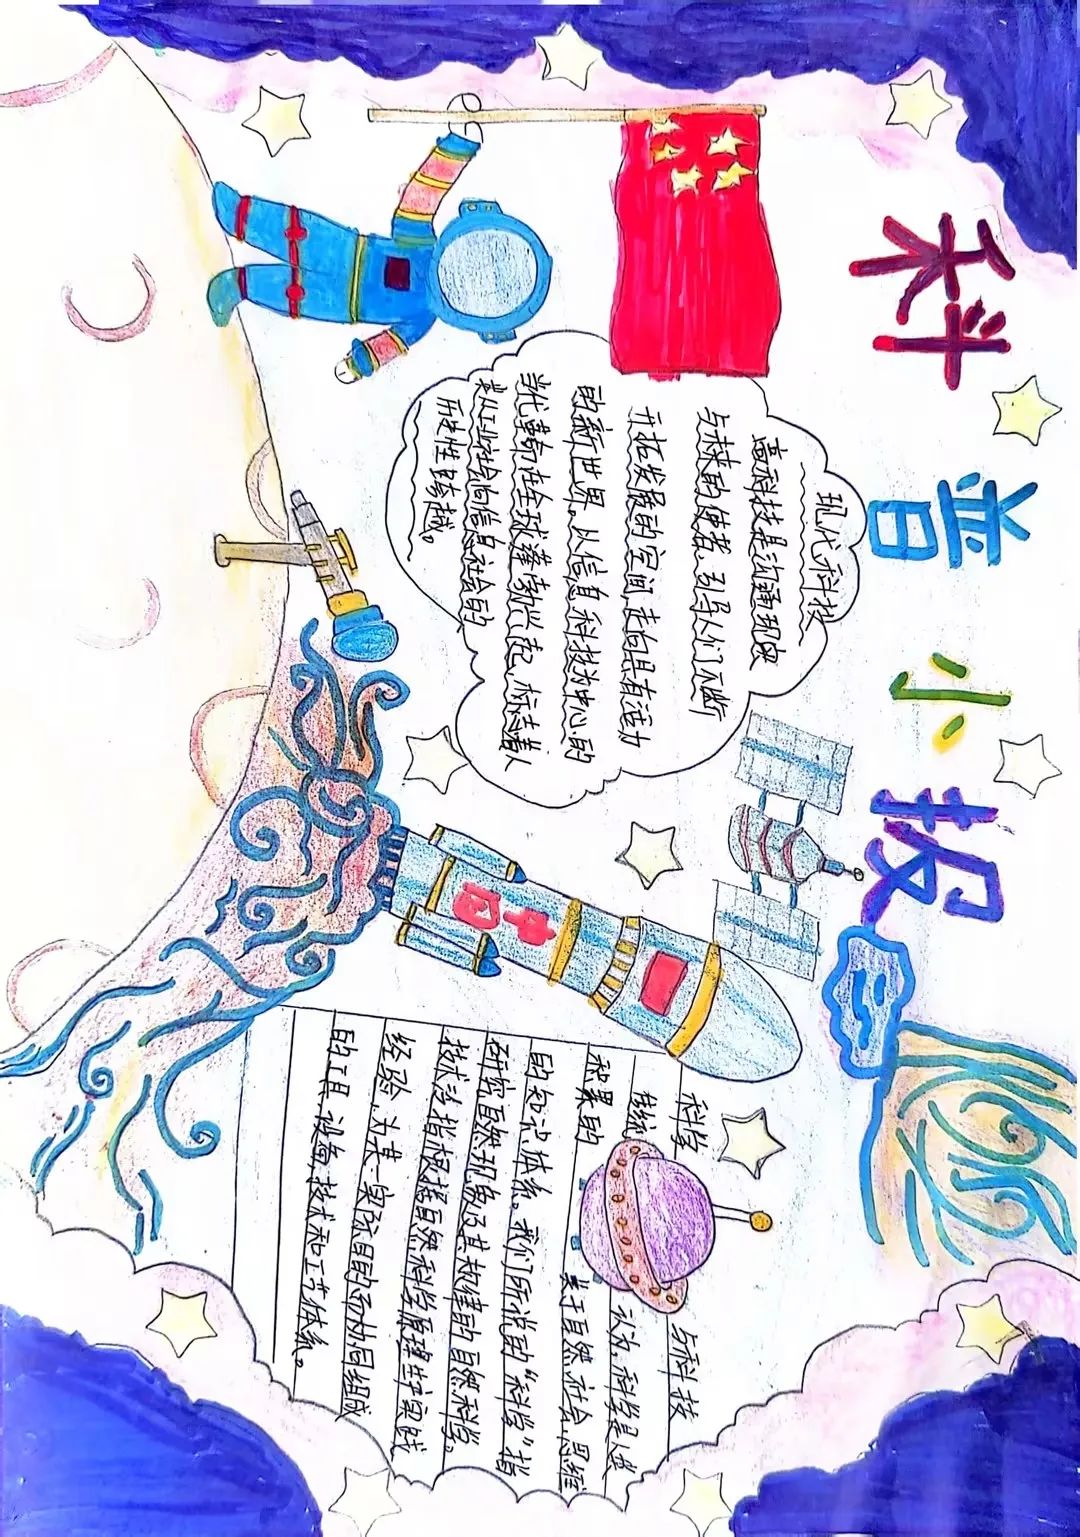 科普小报
现代科技
高科技是沟通现实
与未来的使者、引导人们不断
开拓发展的空间,走向具有活力
的新世界。从信息科技为中心的
当代革命在全球蓬勃兴起,标志着人
类从工业社会向信息社会的
历史性跨越。
中国
科学 与科技
传统 认为,科学是人类
积累的 关于自然,社会,思维
的知识体系。我们所说的“科学”指
研究自然现象及其规律的自然科学。
技术泛指根据自然科学原理生产实践
经验,为某一实际目的而协同组成
的工具,设备,技术和工艺体系。